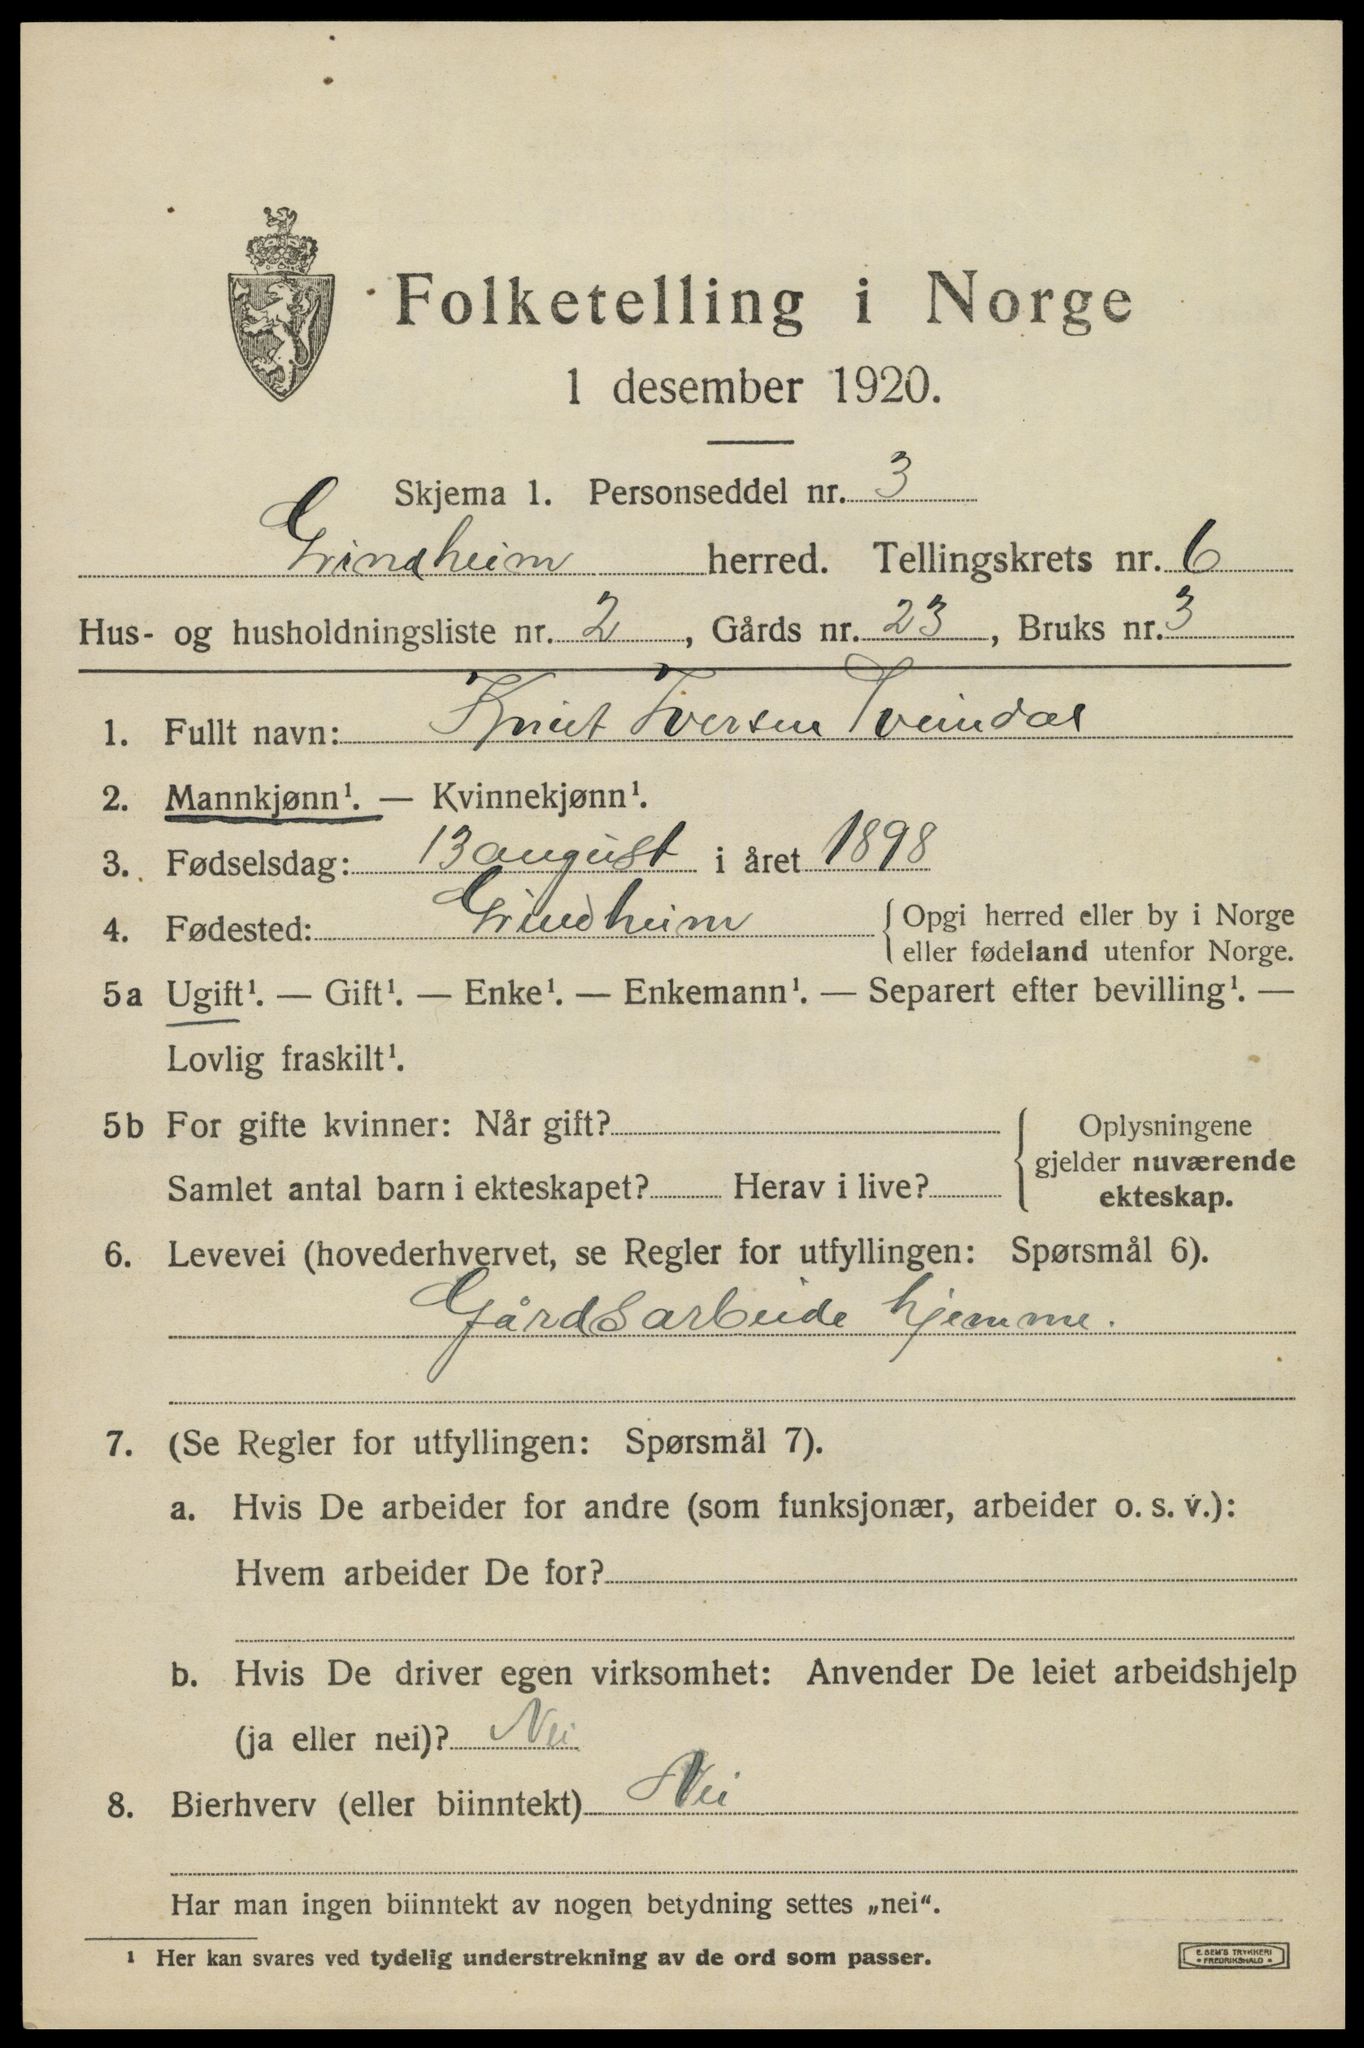 Folketelling i Norge
1 desember 1920.
Skjema 1. Personseddel nr. 3
Grindheim herred. Tellingskrets nr. 6
Hus- og husholdningsliste nr. 2, Gårds nr. 23, Bruks nr. 3
1. Fullt navn: Knut Iversen Tveindal
2. Mannkjønn¹. — Kvinnekjønn¹.
3. Fødselsdag: 13 august i året 1898
4. Fødested: Grindheim { Opgi herred eller by i Norge
eller fødeland utenfor Norge.
5a Ugift¹. — Gift¹. — Enke¹. — Enkemann¹. — Separert efter bevilling¹. —
Lovlig fraskilt¹.
5b For gifte kvinner: Når gift?
Samlet antal barn i ekteskapet? Herav i live?
Oplysningene
gjelder nuværende
ekteskap.
6. Levevei (hovederhvervet, se Regler for utfyllingen: Spørsmål 6).
Gårdsarbeide hjemme.
7. (Se Regler for utfyllingen: Spørsmål 7).
a. Hvis De arbeider for andre (som funksjonær, arbeider o. s. v.):
Hvem arbeider De for?
b. Hvis De driver egen virksomhet: Anvender De leiet arbeidshjelp
(ja eller nei)? Nei
8. Bierhverv (eller biinntekt) Nei
Har man ingen biinntekt av nogen betydning settes „nei“.
¹ Her kan svares ved tydelig understrekning av de ord som passer.
E. SEM'S TRYKKERI
* FREDRIKSHALD *